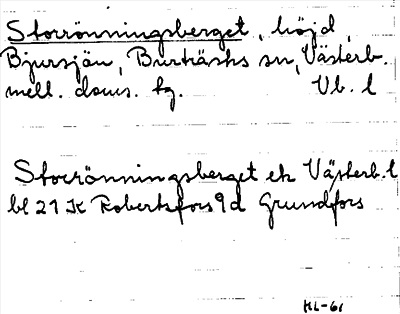 Storrönningsberget, höjd,
Bjursjön, Burträsks sn, Västerb.
mell. doms. hg. Vb. l
Storrönningsberget ek Västerb. l
bl 21 K Robertsfors 9d Grundfors
KL-61